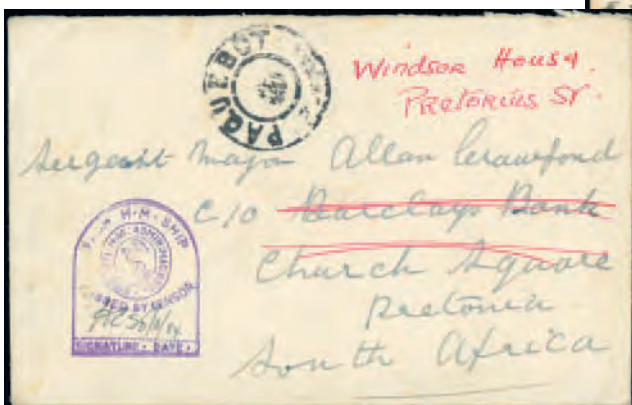 PAQUEBOT
Windsor House.
Pretorius St.
Sergeant Major Allan Crawford
C/O Barclays Bank
Church Square
Pretoria
South Africa
H·M·SHIP
BY CENSOR
SIGNATURE · DATE ·